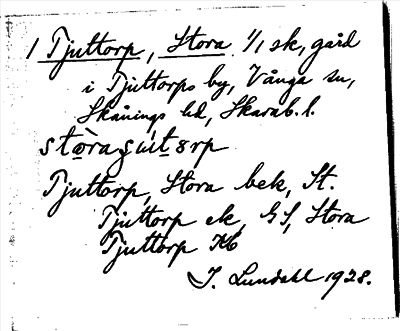 1 Tjuttorp, Stora 1/1 sk, gård
i Tjuttorps by, Vånga sn,
Skånings hd, Skarab. l.
Tjuttorp, Stora bek, St.
Tjuttorp ek, GS, Stora
Tjuttorp Kb
I. Lundahl 1928.